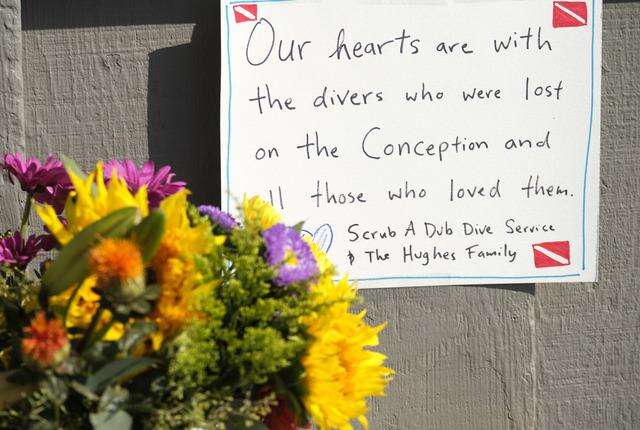 Our hearts are with
the divers who were lost
on the Conception and
ll those who loved them.
Scrub A Dub Dive Service
& The Hughes Family